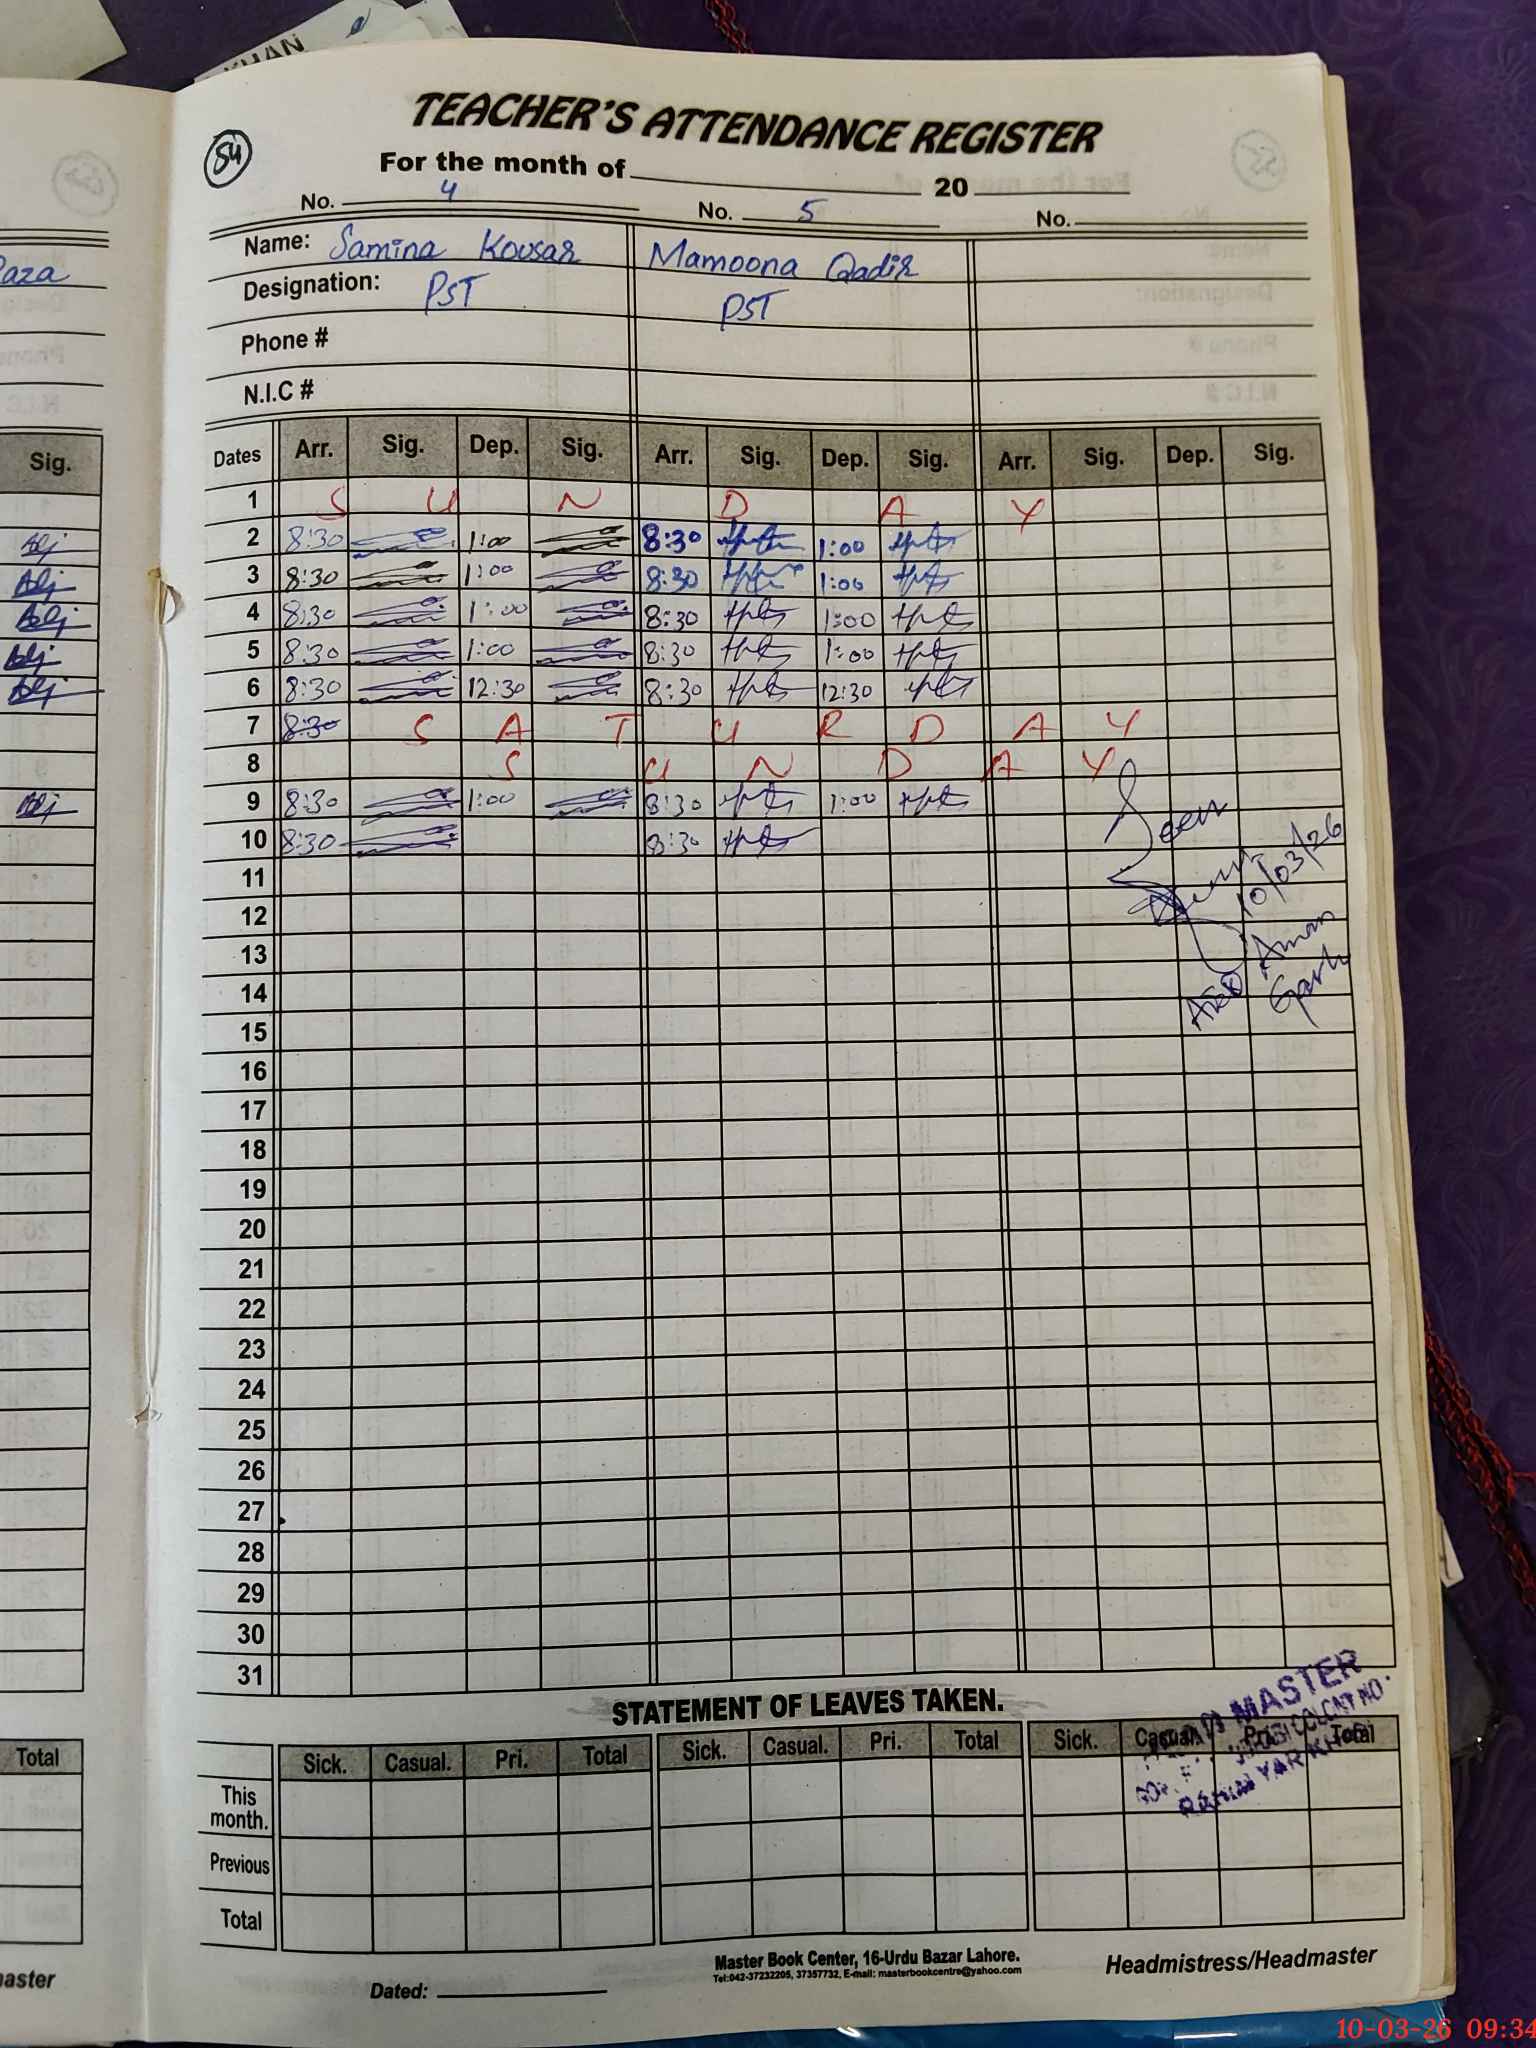 KHAN
TEACHER'S ATTENDANCE REGISTER
54
For the month of 20
No. 4 No. 5 No.
Name: Samina Kousar Mamoona Qadir
Designation: PST PST
Phone #
N.I.C #
Dates Arr. Sig. Dep. Sig. Arr. Sig. Dep. Sig. Arr. Sig. Dep. Sig.
1 S U N D A Y
2 8:30 1:00 8:30 1:00
3 8:30 1:00 8:30 1:00
4 8:30 1:00 8:30 1:00
5 8:30 1:00 8:30 1:00
6 8:30 12:30 8:30 12:30
7 8:30 S A T U R D A Y
8 S U N D A Y
9 8:30 1:00 8:30 1:00
10 8:30 8:30
Seen
10/03/26
Aman
Garh
11
12
13
14
15
16
17
18
19
20
21
22
23
24
25
26
27
28
29
30
31
STATEMENT OF LEAVES TAKEN.
Sick. Casual. Pri. Total Sick. Casual. Pri. Total Sick. Casual. Pri. Total
This month.
Previous
Total
MASTER
Master Book Center, 16-Urdu Bazar Lahore.
Tel:042-37232205, 37357732, E-mail: masterbookcentre@yahoo.com
Headmistress/Headmaster
Dated:
Raza
Sig.
Total
master
10-03-26 09:34